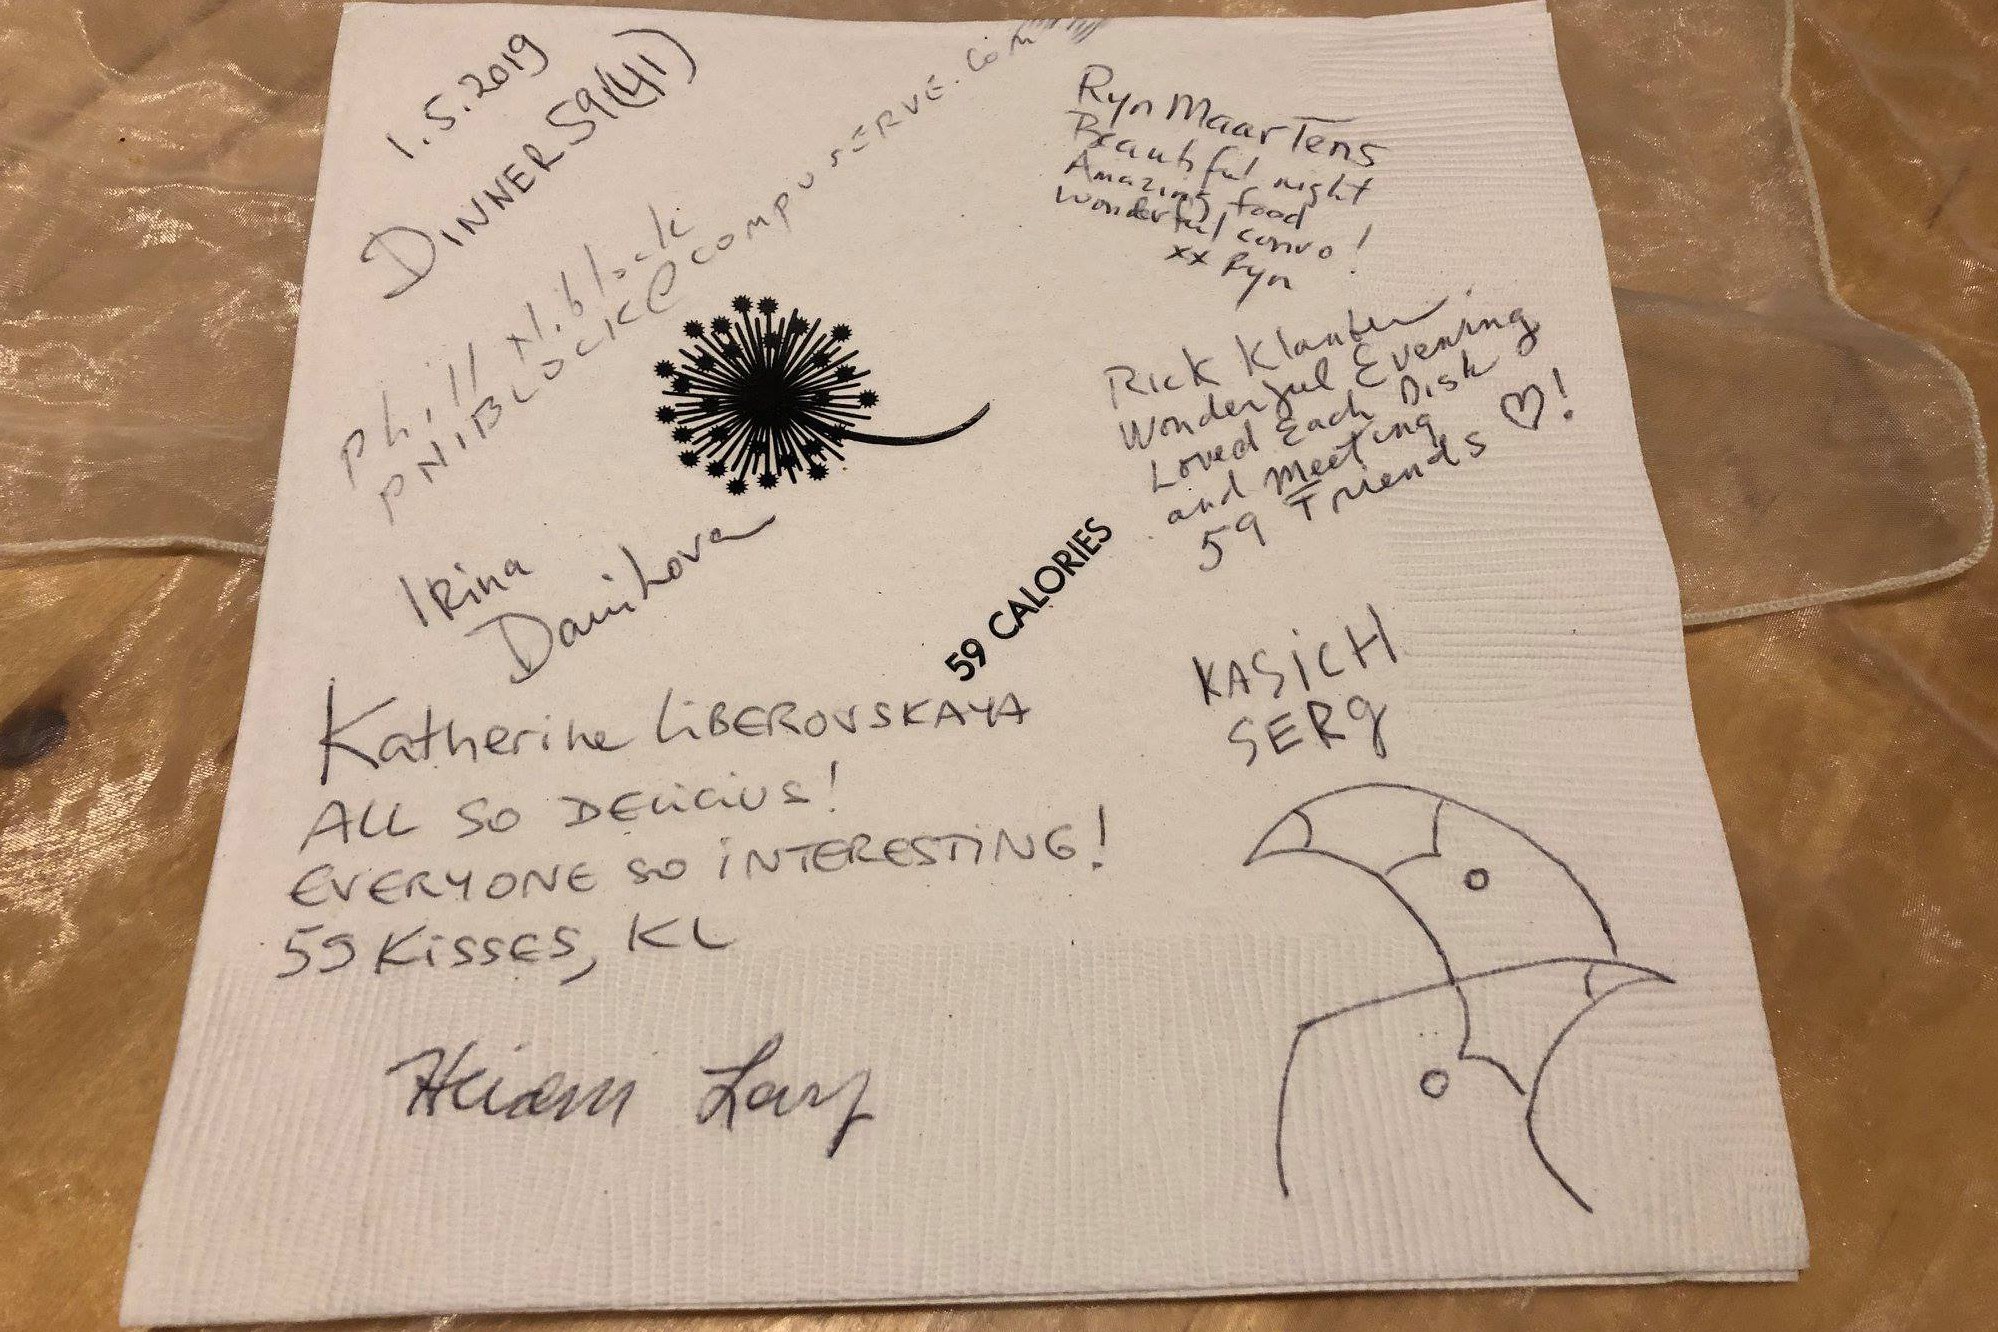 1.5.2019
DINNER59(41)
phill niblock
PNIBLOCK@COMPUSERVE.COM
Ryn MaarTens
Beautiful night
Amazing food
wonderful convo!
xx Ryn
Rick
Wonderful Evening
Loved Each Dish
and Meeting
59 Friends ♡!
Irina
Danilova
59 CALORIES
Katherine LiBEROVSKAYA
ALL SO DELICIUS!
EVERYONE SO INTERESTING!
59 KISSES, KL
KASICH
SERg